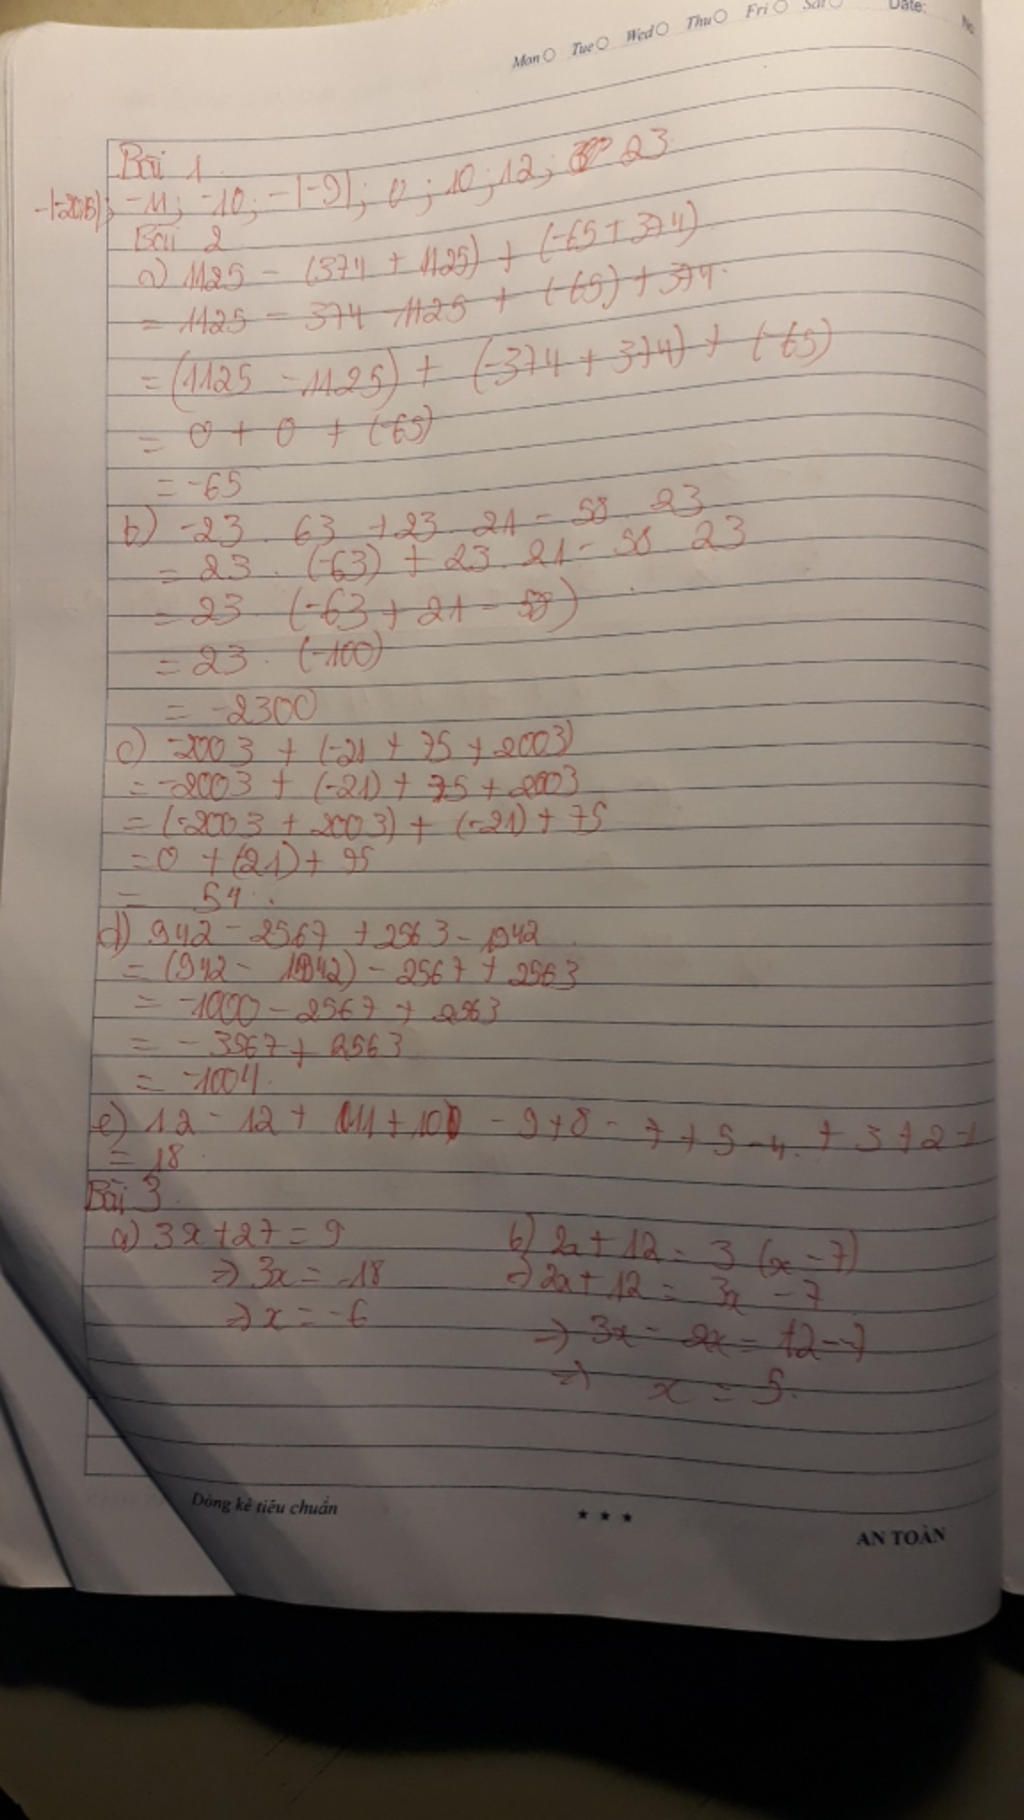 Mon Tue Wed Thu Fri Sat Date:
No
Bài 1
-|-2015|; -11; -10; -|-9|; 0; 10; 12; 23
Bài 2
a) 1125 - (374 + 1125) + (-65 + 374)
= 1125 - 374 - 1125 + (-65) + 374.
= (1125 - 1125) + (-374 + 374) + (-65)
= 0 + 0 + (-65)
= -65
b) -23 . 63 + 23 . 21 - 58 . 23
= 23 . (-63) + 23 . 21 - 58 . 23
= 23 . (-63 + 21 - 58)
= 23 . (-100)
= -2300
c) -2003 + (-21 + 75 + 2003)
= -2003 + (-21) + 75 + 2003
= (-2003 + 2003) + (-21) + 75
= 0 + (21) + 75
= 54.
d) 942 - 2567 + 2563 - 1942
= (942 - 1942) - 2567 + 2563
= -1000 - 2567 + 2563
= -3567 + 2563
= -1004.
e) 12 - 12 + 11 + 10 - 9 + 8 - 7 + 5 - 4 + 3 + 2 - 1
= 18
Bài 3
a) 3x + 27 = 9
=> 3x = -18
=> x = -6
b) 2x + 12 = 3 (x - 7)
=> 2x + 12 = 3x - 7
=> 3x - 2x = 12 - 7
=> x = 5.
Dòng kẻ tiêu chuẩn
★ ★ ★
AN TOÀN